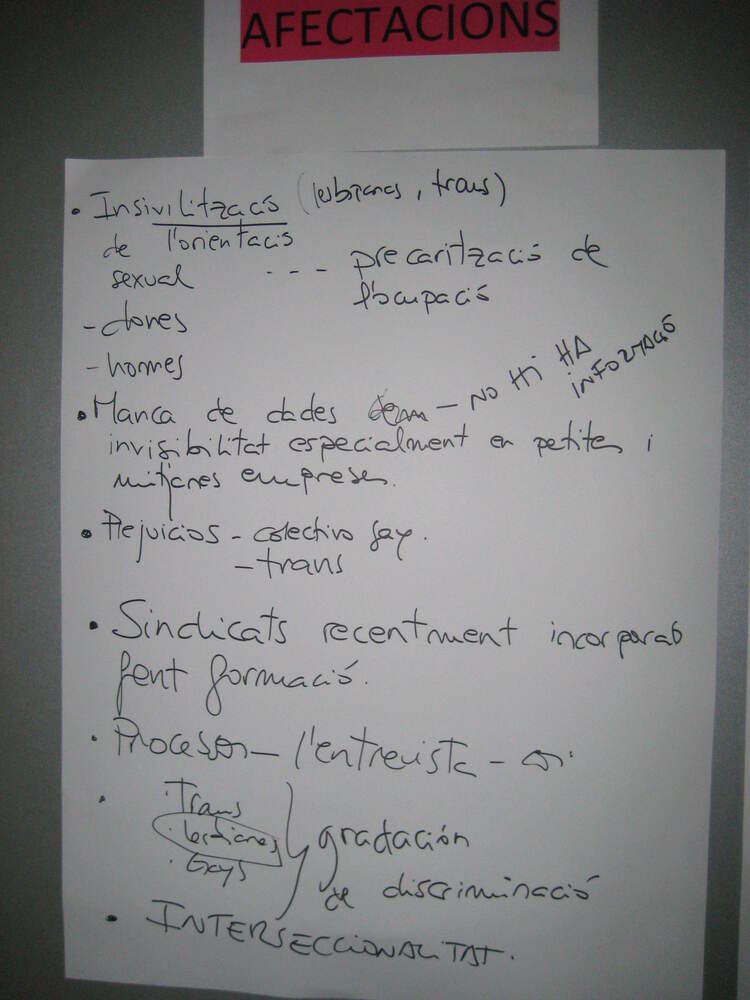 AFECTACIONS
• Insivilització (lesbianes, trans)
de l'orientació
sexual --- precarització de
l'ocupació
- dones
- homes
• Manca de dades - NO Hi HA
INFORMACIÓ
invisibilitat especialment en petites i
mitjanes empreses.
• Prejuicios - colectivo gay.
- trans
• Sindicats recentment incorporats
fent formació.
• Procesos - l'entrevista -
• · Trans
· lesbianes
· Gays
gradación
de discriminació
• INTERSECCIONALITAT.